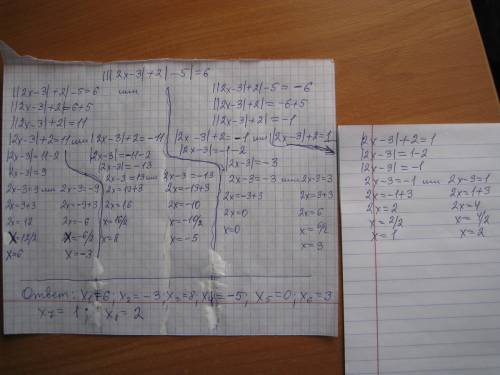 |||2x-3|+2|-5|=6
||2x-3|+2|-5=6 или ||2x-3|+2|-5=-6
||2x-3|+2|=6+5 ||2x-3|+2|=-6+5
||2x-3|+2|=11 ||2x-3|+2|=-1
|2x-3|+2=11 или |2x-3|+2=-11 |2x-3|+2=-1 или |2x-3|+2=1
|2x-3|=11-2 |2x-3|=-11-2 |2x-3|=-1-2
|2x-3|=9 |2x-3|=-13 |2x-3|=-3
2x-3=9 или 2x-3=-9 2x-3=13 или 2x-3=-13 2x-3=-3 или 2x-3=3
2x=9+3 2x=-9+3 2x=13+3 2x=-13+3 2x=-3+3 2x=3+3
2x=12 2x=-6 2x=16 2x=-10 2x=0 2x=6
x=12/2 x=-6/2 x=16/2 x=-10/2 x=0 x=6/2
x=6 x=-3 x=8 x=-5 x=3
Ответ: x₁=6; x₂=-3; x₃=8; x₄=-5; x₅=0; x₆=3
x₇=1; x₈=2
|2x-3|+2=1
|2x-3|=1-2
|2x-3|=-1
2x-3=-1 или 2x-3=1
2x=-1+3 2x=1+3
2x=2 2x=4
x=2/2 x=4/2
x=1 x=2